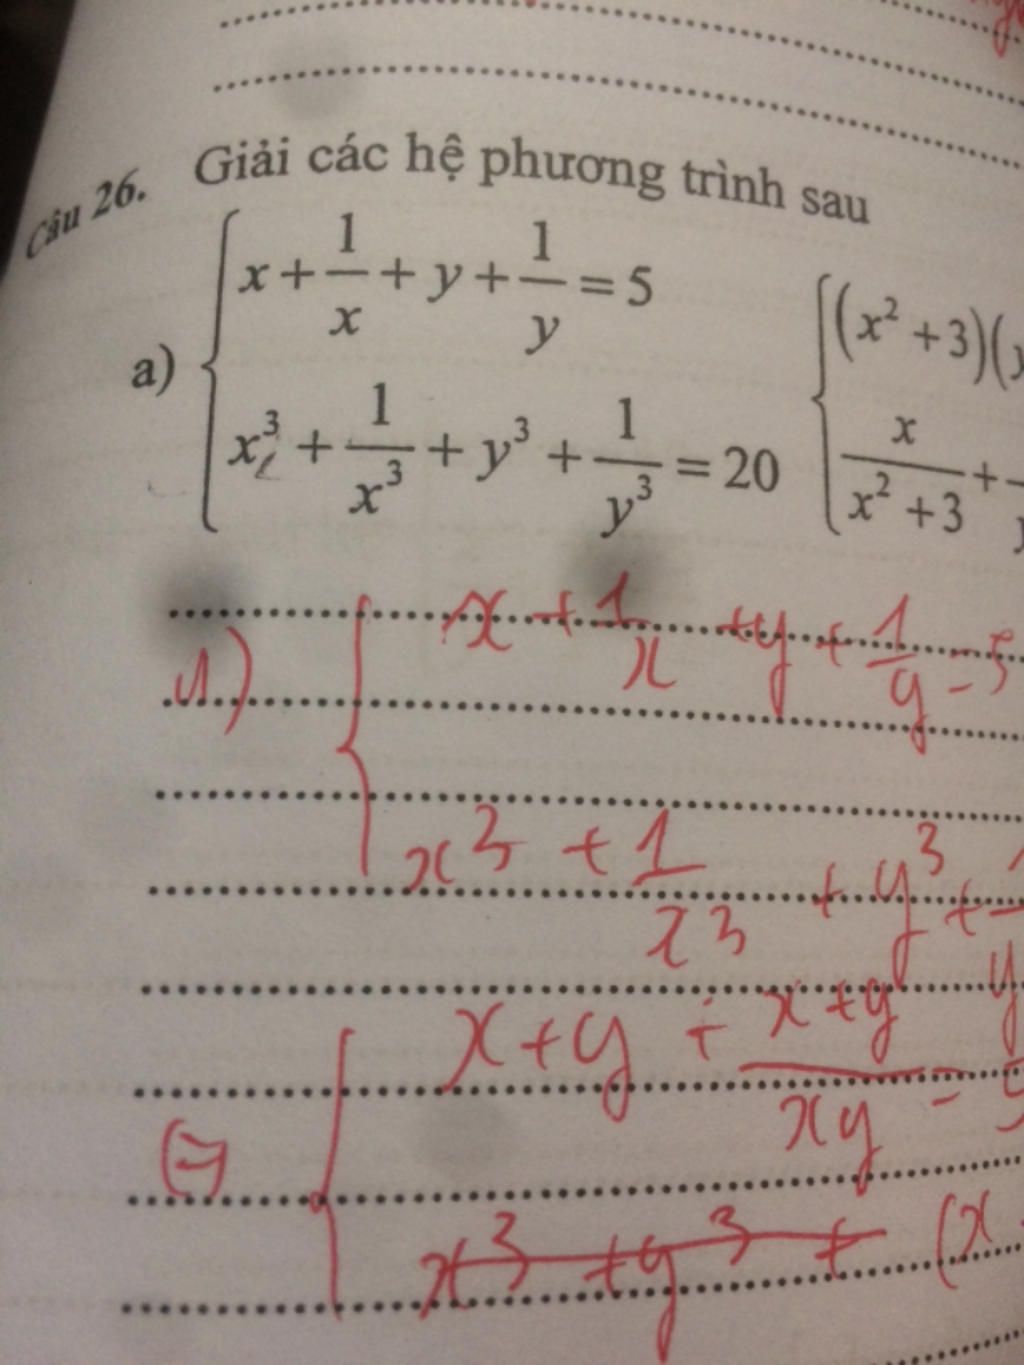 Câu 26. Giải các hệ phương trình sau
a) { x + 1/x + y + 1/y = 5
x³ + 1/x³ + y³ + 1/y³ = 20
{ (x² + 3)(y
x/(x² + 3) +
a) { x + 1/x + y + 1/y = 5
x³ + 1/x³ + y³ +
⇔ { x + y + (x + y)/xy = 5
x³ + y³ + (x